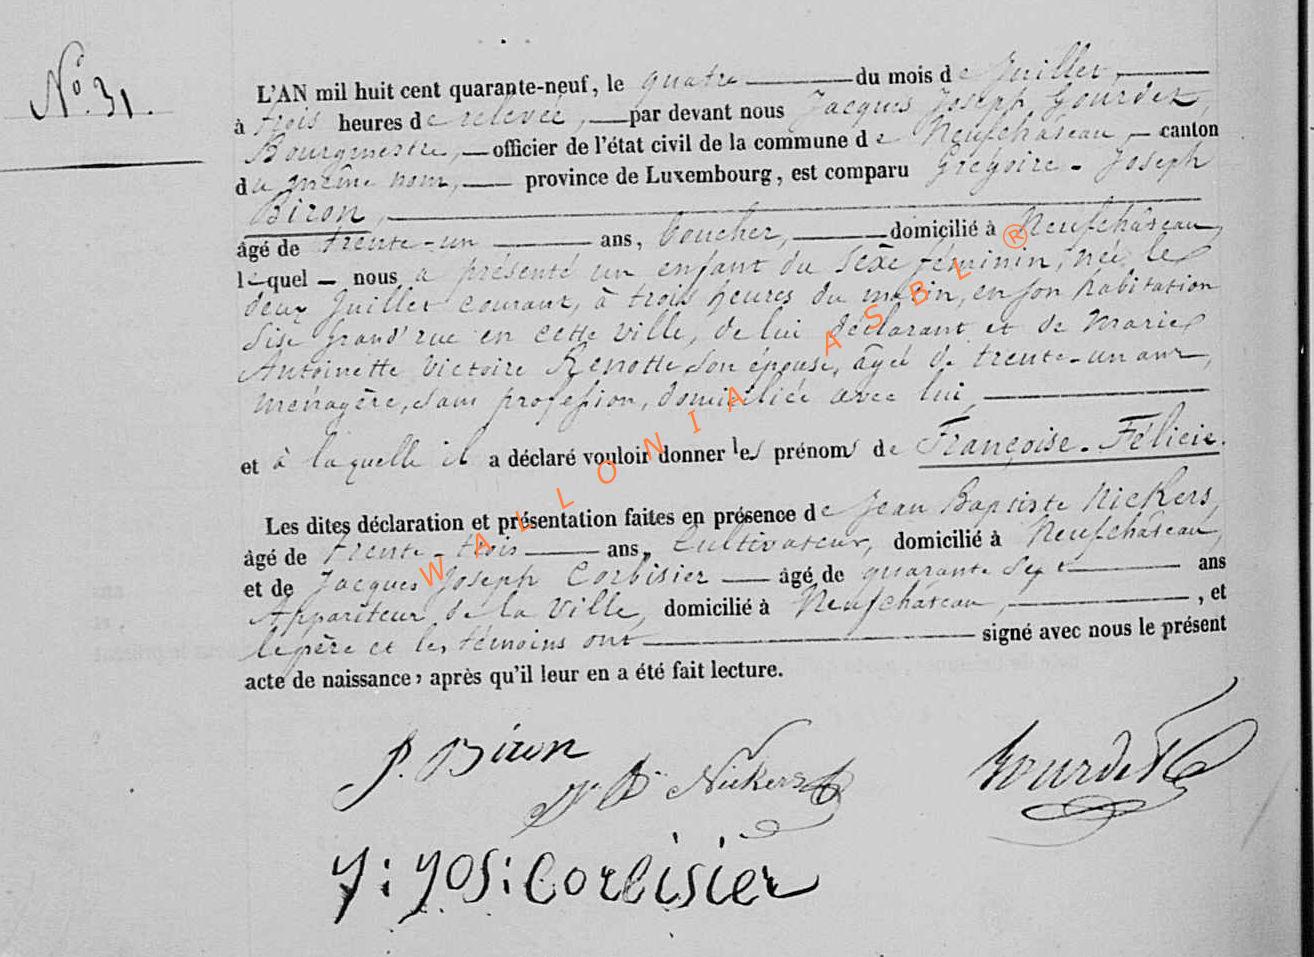 N° 31.
L'AN mil huit cent quarante-neuf, le quatre du mois de Juillet,
à trois heures de relevée, par devant nous Jacques Joseph Gourdet,
Bourgmestre, officier de l'état civil de la commune de Neufchâteau, canton
du même nom, province de Luxembourg, est comparu Grégoire-Joseph
Biron,
âgé de trente-un ans, boucher, domicilié à Neufchâteau,
lequel nous a présenté un enfant du sexe féminin, née le
deux Juillet courant, à trois heures du matin, en son habitation
sise grand'rue en cette ville, de lui déclarant et de Marie
Antoinette Victoire Renotte son épouse, âgée de trente-un ans,
ménagère, sans profession, domiciliée avec lui,
et à laquelle il a déclaré vouloir donner les prénoms de Françoise-Félicie.
Les dites déclaration et présentation faites en présence de Jean Baptiste Nickers,
âgé de trente-trois ans, Cultivateur, domicilié à Neufchâteau,
et de Jacques Joseph Corbisier âgé de quarante sept ans
Appariteur de la Ville, domicilié à Neufchateau, , et
le père et les témoins ont signé avec nous le présent
acte de naissance, après qu'il leur en a été fait lecture.
J. Biron
Nickers
Gourdet
J: JOS: Corbisier
WALLONIA ASBL ®